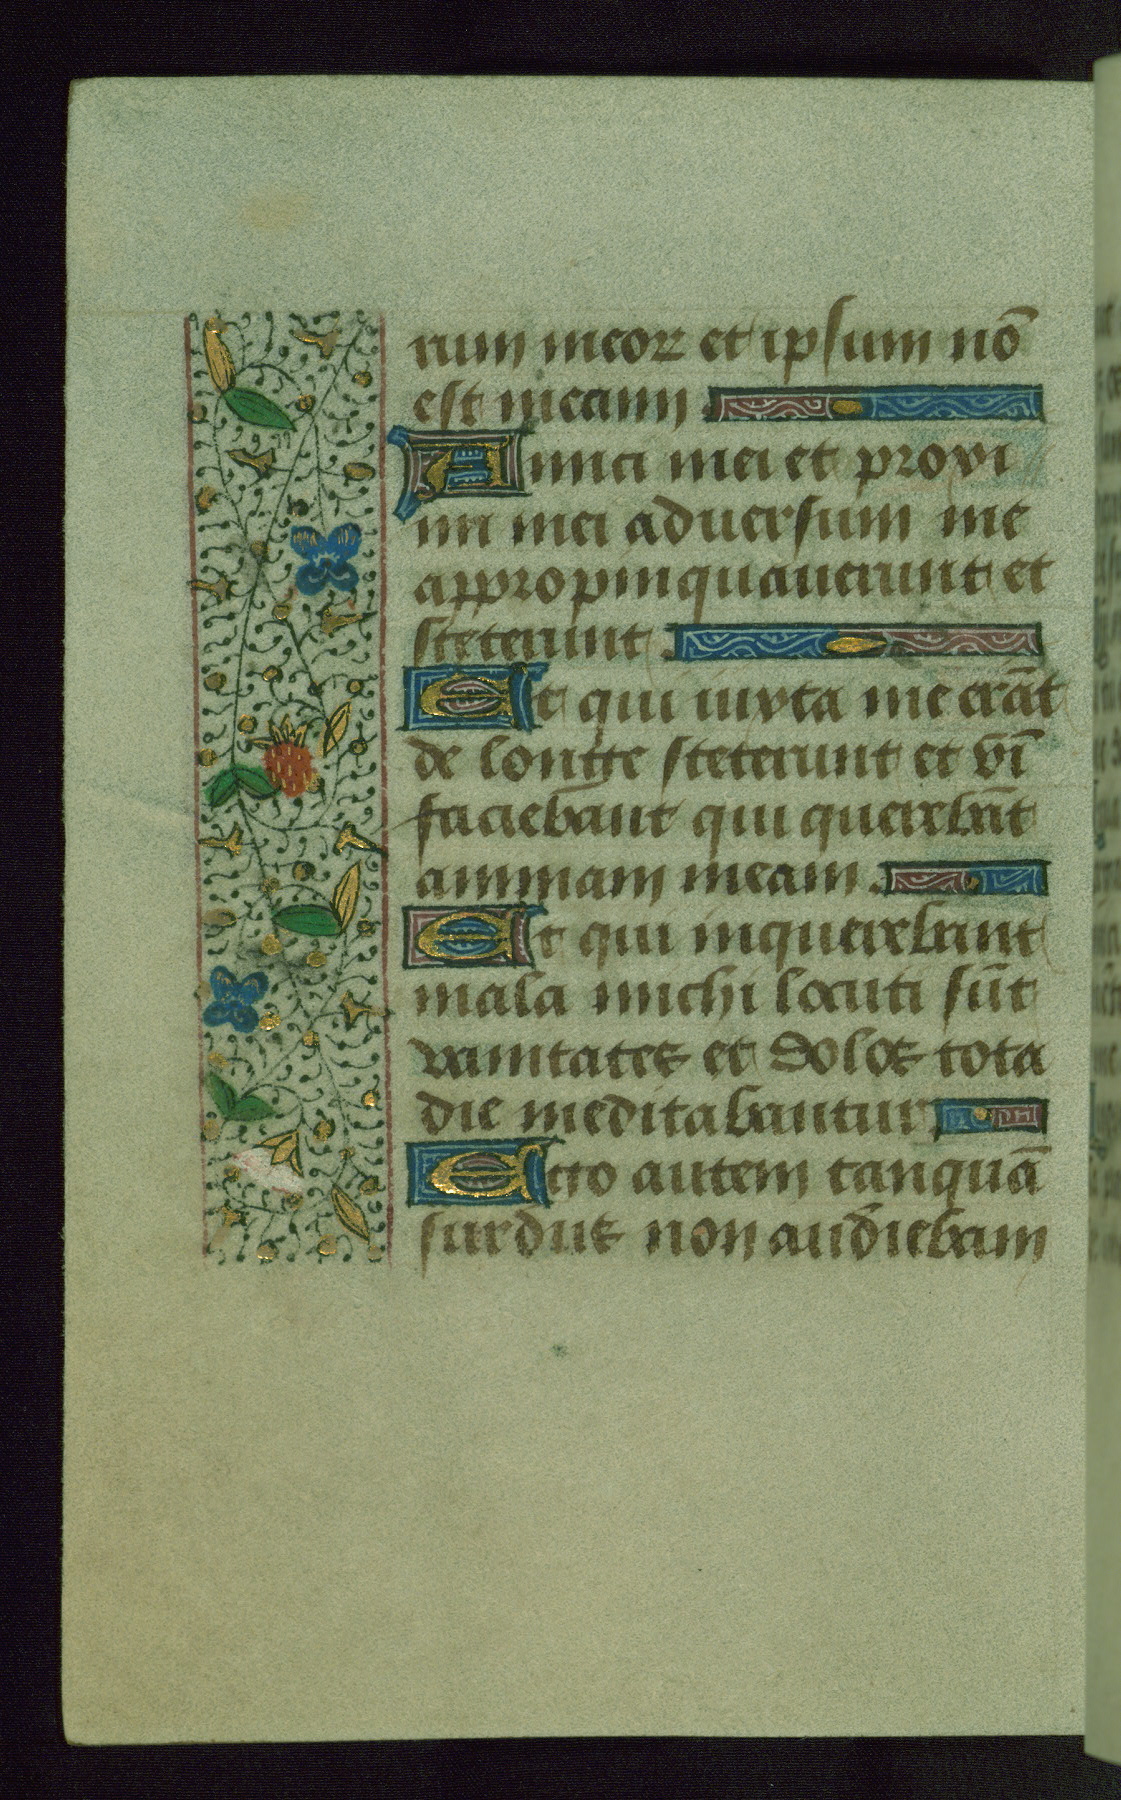 rum meoꝝ et ipsum nō
est mecum
Amici mei et proxi
mi mei aduersum me
appropinquauerunt et
steterunt
Et qui iuxta me erāt
de longe steterunt et vī
faciebant qui querebāt
animam meam
Et qui inquirebant
mala michi locuti sūt
vanitates et dolos tota
die meditabantur
Ego autem tanquā
surdus non audiebam